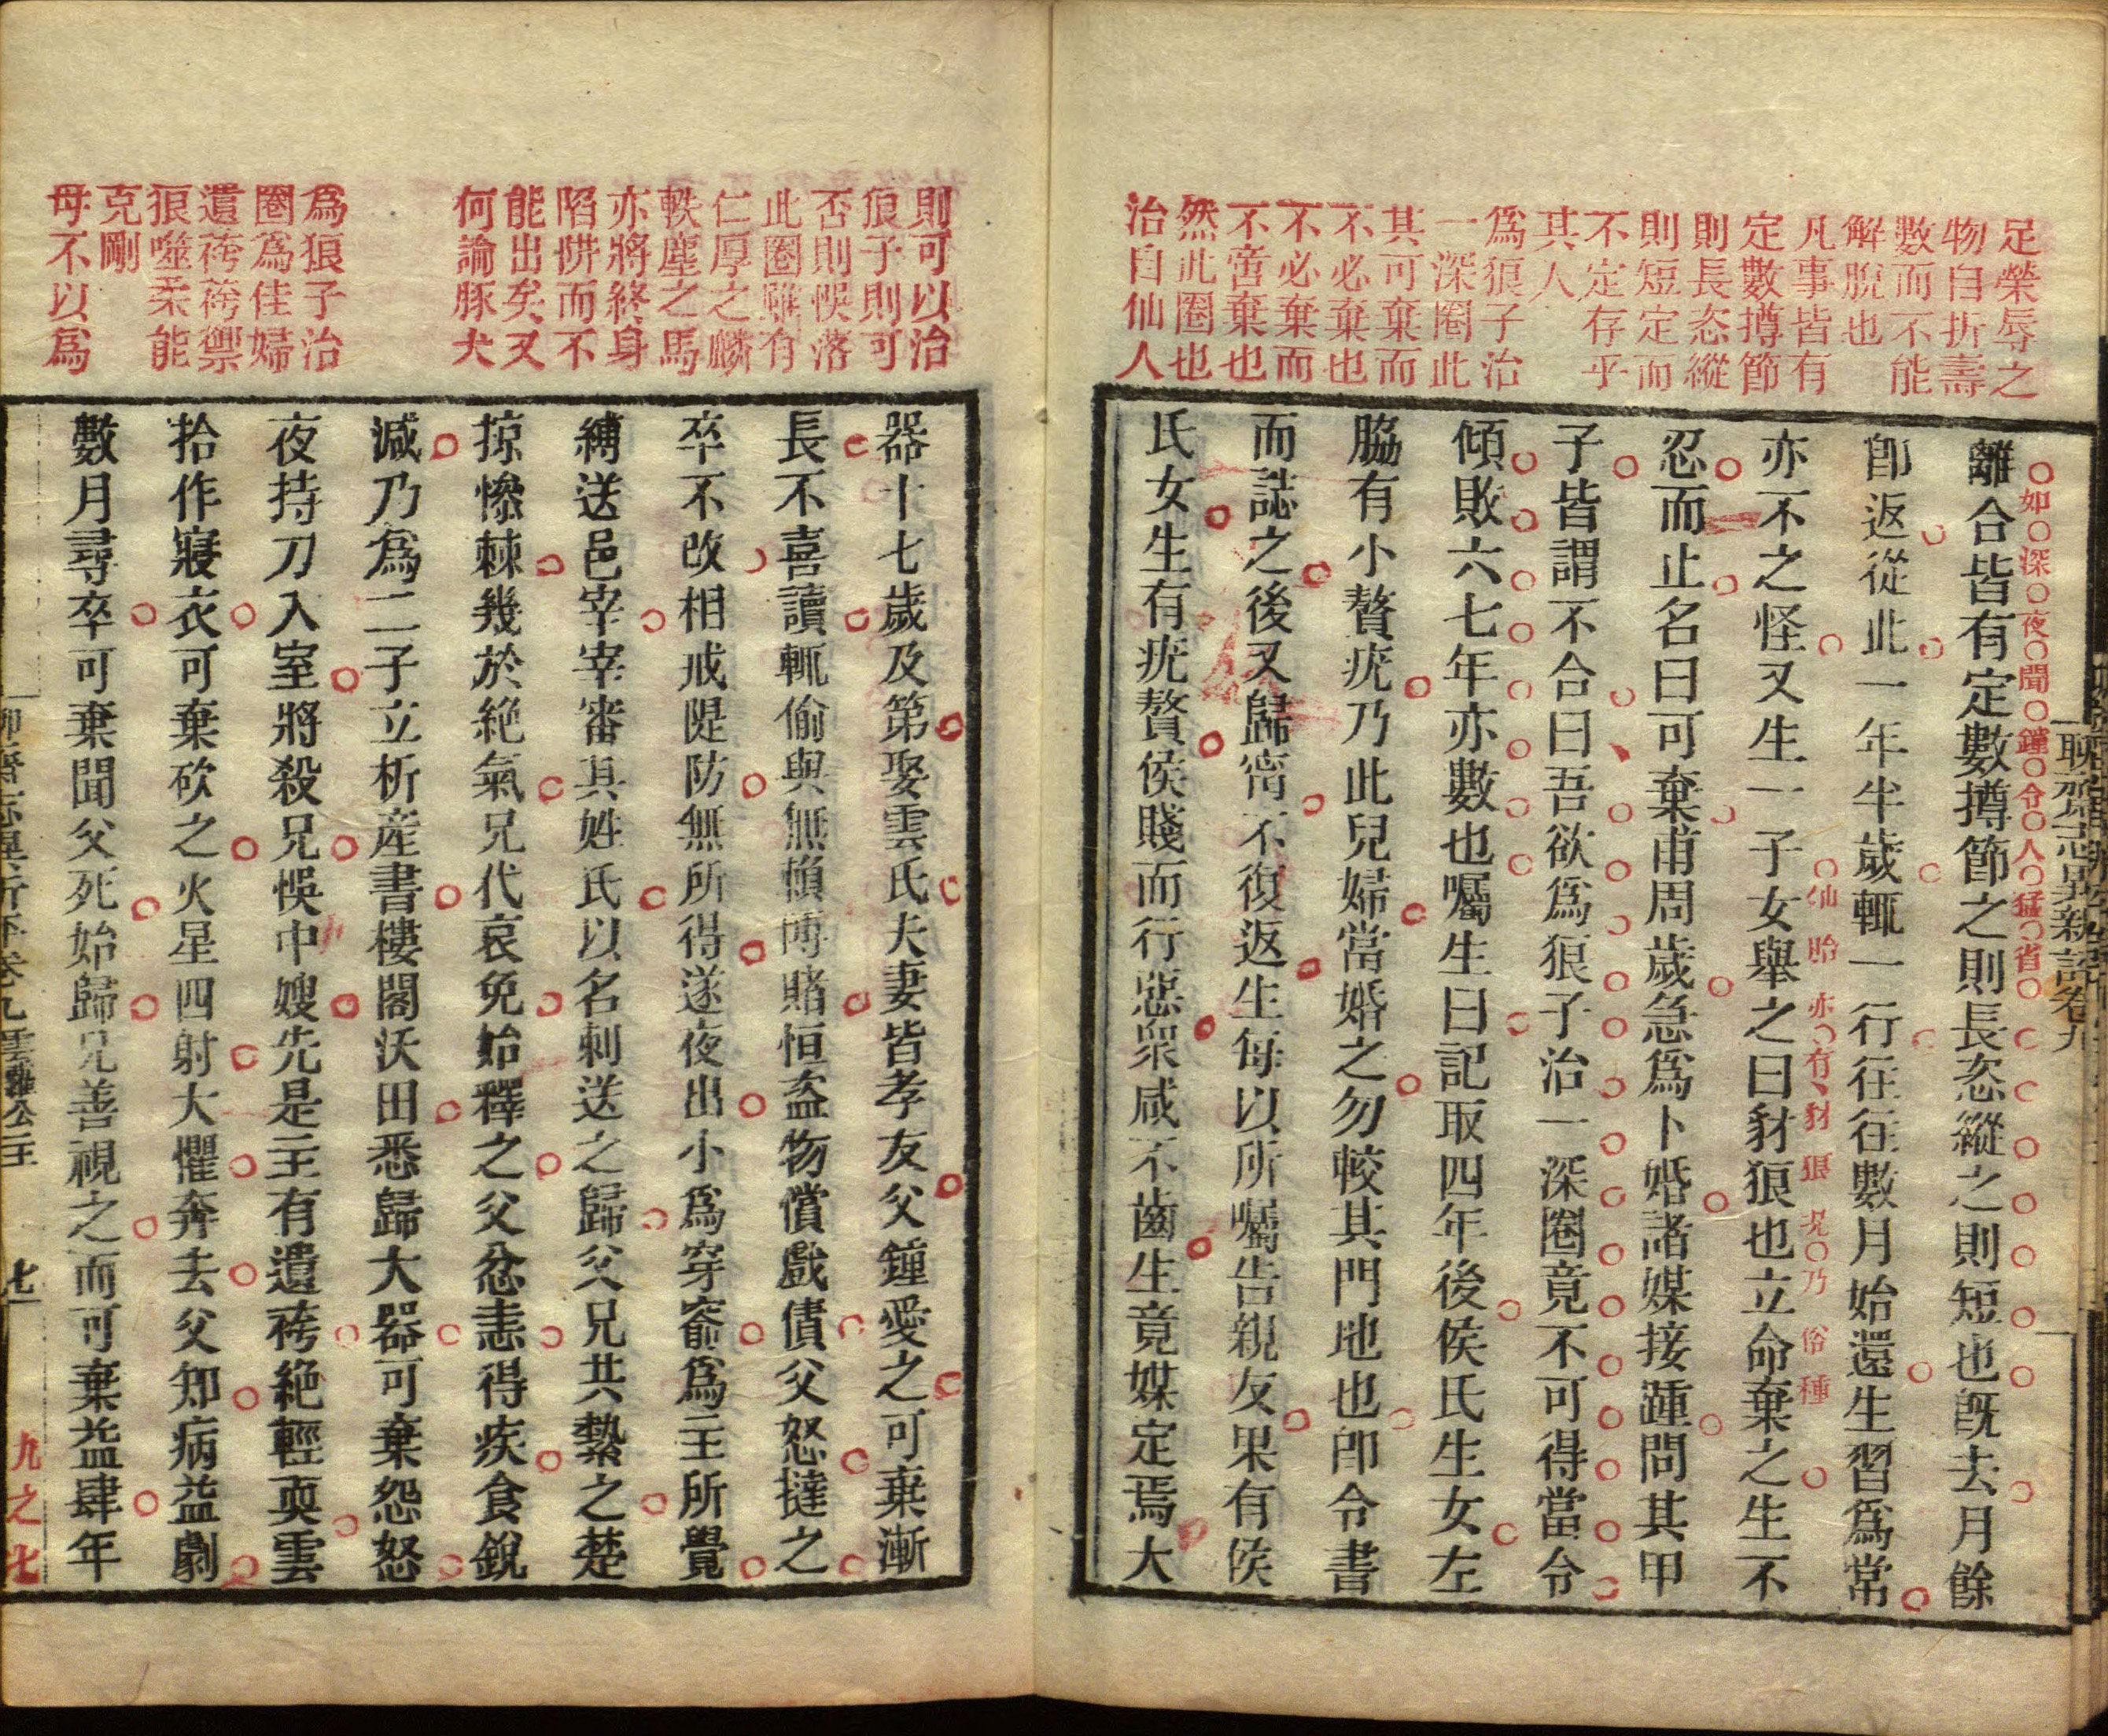 足榮辱之
物自折壽
數而不能
解脫也
凡事皆有
定數撙節
則長恣縱
則短定而
不定存乎
其人
爲狼子治
一深圈此
其可棄而
不必棄也
不必棄而
不啻棄也
然此圈也
治自仙人
聊齋志異新評卷九
如深夜聞鐘令人猛省
離合皆有定數撙節之則長恣縱之則短也旣去月餘
卽返從此一年半歲輒一行往往數月始還生習爲常
亦不之怪又生一子女舉之曰豺狼也立命棄之生不
仙胎亦有豺狼況乃俗種
忍而止名曰可棄甫周歲急爲卜婚諸媒接踵問其甲
子皆謂不合曰吾欲爲狼子治一深圈竟不可得當令
傾敗六七年亦數也囑生曰記取四年後侯氏生女左
脇有小贅疣乃此兒婦當婚之勿較其門地也卽令書
而誌之後又歸甯不復返生每以所囑告親友果有侯
氏女生有疣贅侯賤而行惡衆咸不齒生竟媒定焉大
則可以治
狼子則可
否則悞落
此圈雖有
仁厚之麟
軼塵之馬
亦將終身
陷阱而不
能出矣又
何論豚犬
爲狼子治
圈爲佳婦
遺袴袴禦
狼噬柔能
克剛
母不以爲
器十七歲及第娶雲氏夫妻皆孝友父鍾愛之可棄漸
長不喜讀輒偷與無賴博賭恒盜物償戲債父怒撻之
卒不改相戒隄防無所得遂夜出小爲穿窬爲主所覺
縛送邑宰宰審其姓氏以名刺送之歸父兄共縶之楚
掠慘棘幾於絕氣兄代哀免始釋之父忿恚得疾食銳
減乃爲二子立析產書樓閣沃田悉歸大器可棄怨怒
夜持刀入室將殺兄悞中嫂先是主有遺袴絕輕耎雲
拾作寢衣可棄砍之火星四射大懼奔去父知病益劇
數月尋卒可棄聞父死始歸兄善視之而可棄益肆年
聊齋志異新評卷九雲蘿公主
七
九之七